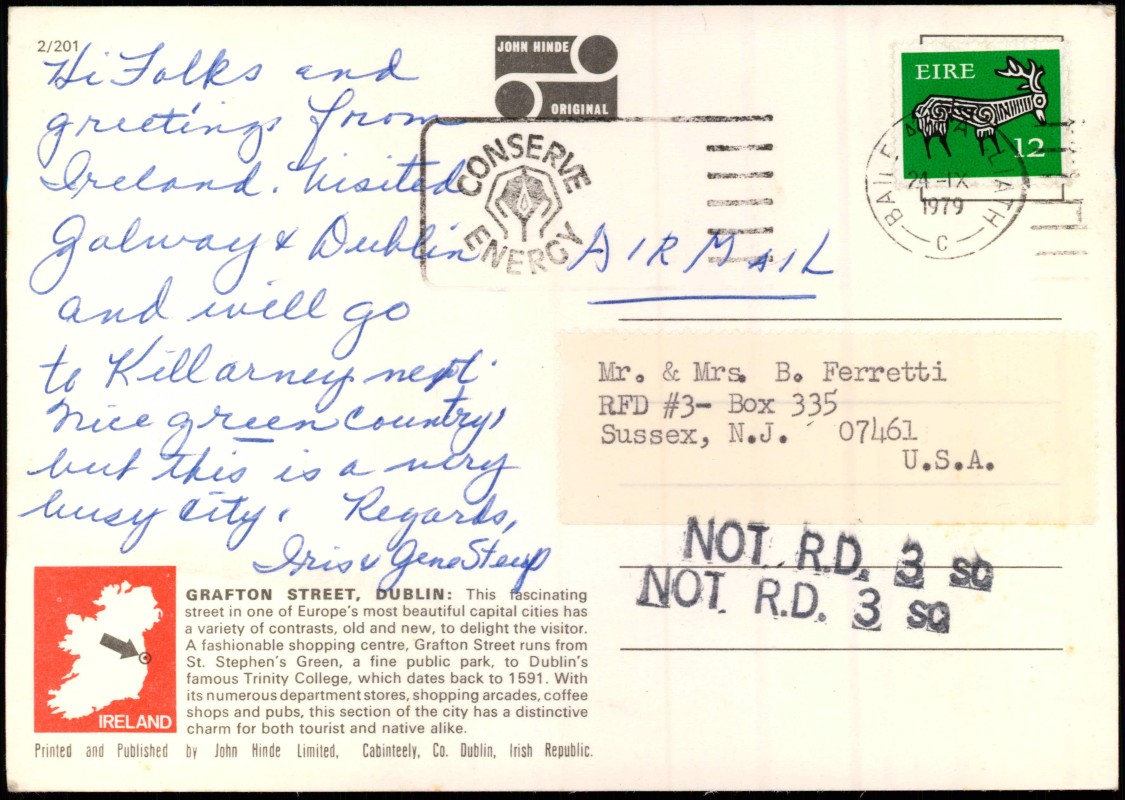 2/201
Hi Folks and
greetings from
Ireland. Visited
Galway & Dublin
and will go
to Killarney next.
Nice green country,
but this is a very
busy city. Regards,
Iris & Gene
JOHN HINDE
ORIGINAL
CONSERVE
ENERGY
EIRE
12
BAILE ÁTHA CLIATH
24-IX
1979
C
AIR MAIL
Mr. & Mrs. B. Ferretti
RFD #3- Box 335
Sussex, N.J. 07461
U.S.A.
NOT R.D. 3 SQ
NOT R.D. 3 SQ
IRELAND
GRAFTON STREET, DUBLIN: This fascinating
street in one of Europe's most beautiful capital cities has
a variety of contrasts, old and new, to delight the visitor.
A fashionable shopping centre, Grafton Street runs from
St. Stephen's Green, a fine public park, to Dublin's
famous Trinity College, which dates back to 1591. With
its numerous department stores, shopping arcades, coffee
shops and pubs, this section of the city has a distinctive
charm for both tourist and native alike.
Printed and Published by John Hinde Limited, Cabinteely, Co. Dublin, Irish Republic.